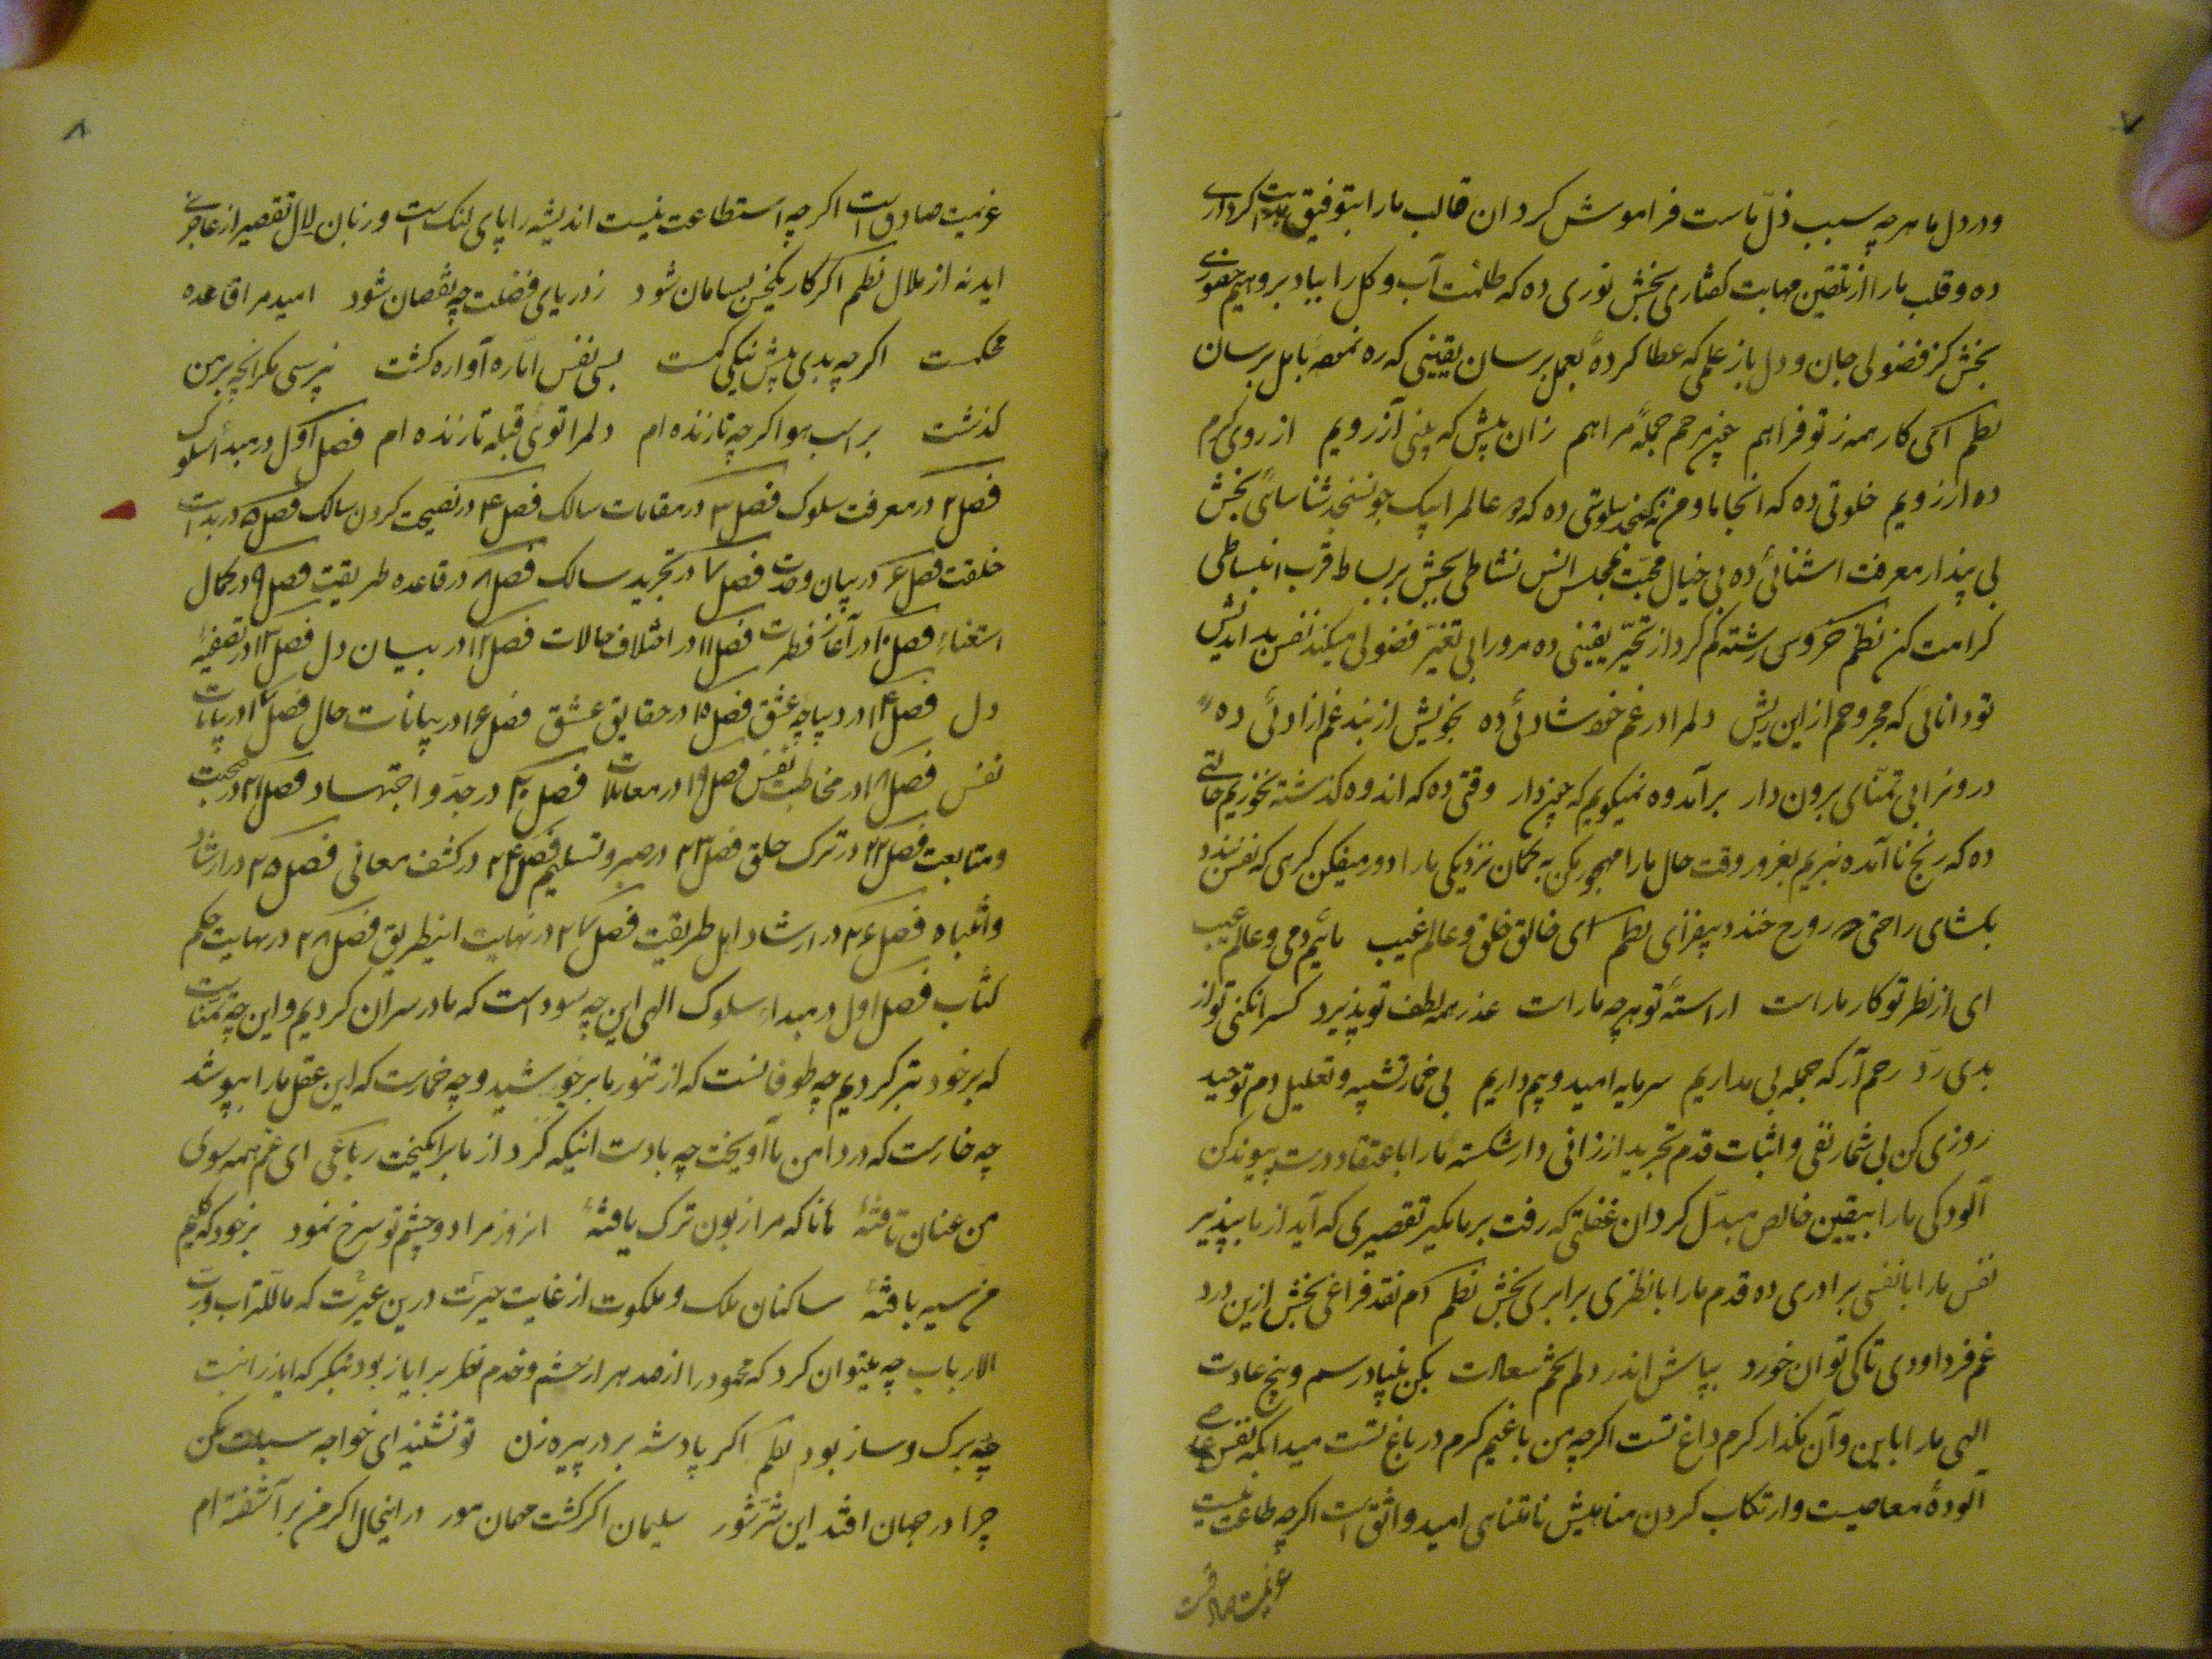 ۷
ودر دل ما هرچه سبب ذلّ ماست فراموش کردان قالب ما را بتوفیق کرداری
ده وقلب ما را از تلقین مهابت کفتاری بخش نوری ده که ظلمت آب وکل را بباد بردهیم حضوری
بخش کز فضولی جان ودل باز علمی که عطا کردهٔ بعمل برسان یقینی که ره نمعهٔ باهل برسان
نظم ای کار همه ز تو فراهم جمله مراهم زان پیش که بینی آزرویم از روی کرم
ده ارزویم خلوتی ده که انجا ما ومن نکنجد سلوتی ده که عالم را بیک جو نسنجد شناسائی بخش
بی پندار معرفت اشنائی ده بی خیال محبّت مجلس انس نشاطی بخش بر بساط قرب انبساطی
کرامت کن نظم رشته کم کرد از تحیّر یقینی ده مرورا بی تغیّر فضولی میکند نفس بداندیش
تو دانائی که مجروحم از این ریش دلم را در غم خود شادئی ده بخویش از بند غم ازادئی ده
درونرا بی تمنّای برون دار برآمده نمیکویم که چون دار وقتی ده که اندوه کذشته نخوریم حالتی
ده که رنج ناآمده نبریم بغرور وقت حال ما را مهجور مکن به کمان نزدیکی ما را دور میفکن کرهی که نفس زند و
بکشای راحتی که روح خندد بیفزای نظم ای خالق خلق وعالم غیب مائیم دمی وعالم عیب
ای از نظر تو کار ما راست اراستهٔ تو هرچه ما راست عذر همه لطف تو پذیرد کس را نکنی تو از
بدی ردّ رحم آر که جمله بی مداریم سرمایه امید وبیم داریم بی خمار تشبیه وتعلیل دم توحید
روزی کن بی شمار نفی واثبات قدم تجرید ارزانی دار شکستهٔ ما را با عتقاد درست پیوند کن
آلودکی ما را بیقین خالص مبدّل کردان غفلتی که رفت بر ما مکیر تقصیری که آید از ما بپذیر
نفس ما را با نفسی برادری ده قدم ما را با نظری برابری بخش نظم دم نقد فراغی بخش ازین درد
غم فردا ودی تا کی توان خورد بپاش اندر دلم تخم سعادت بکن بنیاد رسم وبیخ عادت
الهی ما را باین وآن مکذار کرم داغ تست اکرچه من باغیم کرم در باغ تست میدانکه نفس
آلودهٔ معاصیت وارتکاب کردن مناهیش نامتناهی امید واثق است اکرچه طاعت نیست
عزیمت صادقست
۸
عزیمت صادق است اکرچه استطاعت نیست اندیشه را پای لنک است وزبان لال تقصیر از عاجزی
اید نه از ملال نظم اکر کار یکخس بسامان شود ز دریای فضلت چه نقصان شود امید مرا قاعده
محکمست اکرچه بدی پیش نیکی کمست بسی نفس امّاره آواره کشت نپرسی مکر انچه بر من
کذشت بر اسب هوا اکرچه تازنده ام دلمرا توئی قبله تا زنده ام فصل اول در مبدأ سلوک
فصل ۲ در معرفت سلوک فصل ۳ در مقامات سالک فصل ۴ در نصیحت کردن سالک فصل ۵ در بدایت
خلقت فصل ۶ در بیان وحدت فصل ۷ در تجرید سالک فصل ۸ در قاعده طریقت فصل ۹ در کمال
استغناء فصل ۱۰ در آغاز فطرت فصل ۱۱ در اختلاف حالات فصل ۱۲ در بیان دل فصل ۱۳ در تصفیهٔ
دل فصل ۱۴ در دیباچه عشق فصل ۱۵ در حقایق عشق فصل ۱۶ در بیانات حال فصل ۱۷ در بیانات
نفس فصل ۱۸ در مخاطبت نفس فصل ۱۹ در معاملات فصل ۲۰ در جدّ واجتهاد فصل ۲۱ در صحبت
ومتابعت فصل ۲۲ در ترک خلق فصل ۲۳ در صبر وتسلیم فصل ۲۴ در کشف معانی فصل ۲۵ در ارشاد
وانتباه فصل ۲۶ در ارشاد اهل طریقت فصل ۲۷ در نهایت اینطریق فصل ۲۸ در نهایت حکم
کتاب فصل اول در مبداء سلوک الهی این چه سود است که ما در سر ان کردیم واین چه تمنّاست
که بر خود بتر کردیم چه طوفانست که از تنور ما بر جوشید وچه خمارست که این عقل ما را بپوشد
چه خارست که در دامن ما آویخت چه بادست اینکه کرد از ما برانکیخت رباعی ای غم همه سوی
من عنان تافتهٔ مانا که مرا زبون ترک یافتهٔ از روز مرا دو چشم تو سرخ نمود بر خود که کلیم
من سیه بافتهٔ ساکنان ملک وملکوت از غایت حیرت درین عبرت که ما للتراب وربّ
الارباب چه میتوان کرد که محمود را از صد هزار حشم وخدم نظر بر ایاز بود بنکر که ایاز را نیت
چه برک وساز بود نظم اکر پادشه بر در پیره زن تو نشنید ای خواجه سبلت مکن
چرا در جهان افتد این شرّ وشور سلیمان اکر کشت مهمان مور در اینحال اکر من بر آشفته ام